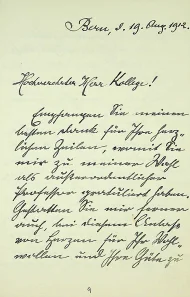 Bern, d. 19. Aug. 1912.
Hochverehrter Herr Kollege!
Empfangen Sie meinen
besten Dank für Ihre herz-
lichen Zeilen, womit Sie
mir zu meiner Wahl
als ausserordentlicher
Professor gratuliert haben.
Gestatten Sie mir ferner
auch, bei diesem Anlass
von Herzen für Ihr Wohl-
wollen und Ihre Güte zu